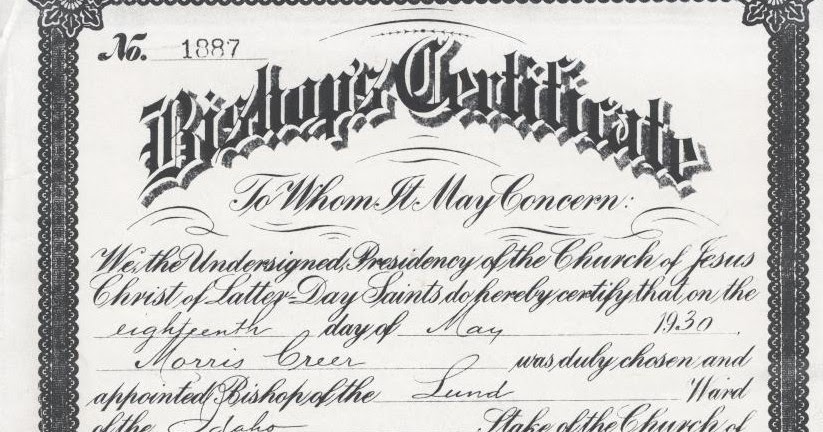 No. 1887
Bishop's Certificate
To Whom It May Concern:
We, the Undersigned, Presidency of the Church of Jesus
Christ of Latter-Day Saints, do hereby certify that on the
eighteenth day of May 1930.
Morris Creer was duly chosen and
appointed Bishop of the Lund Ward
of the Idaho Stake of the Church of